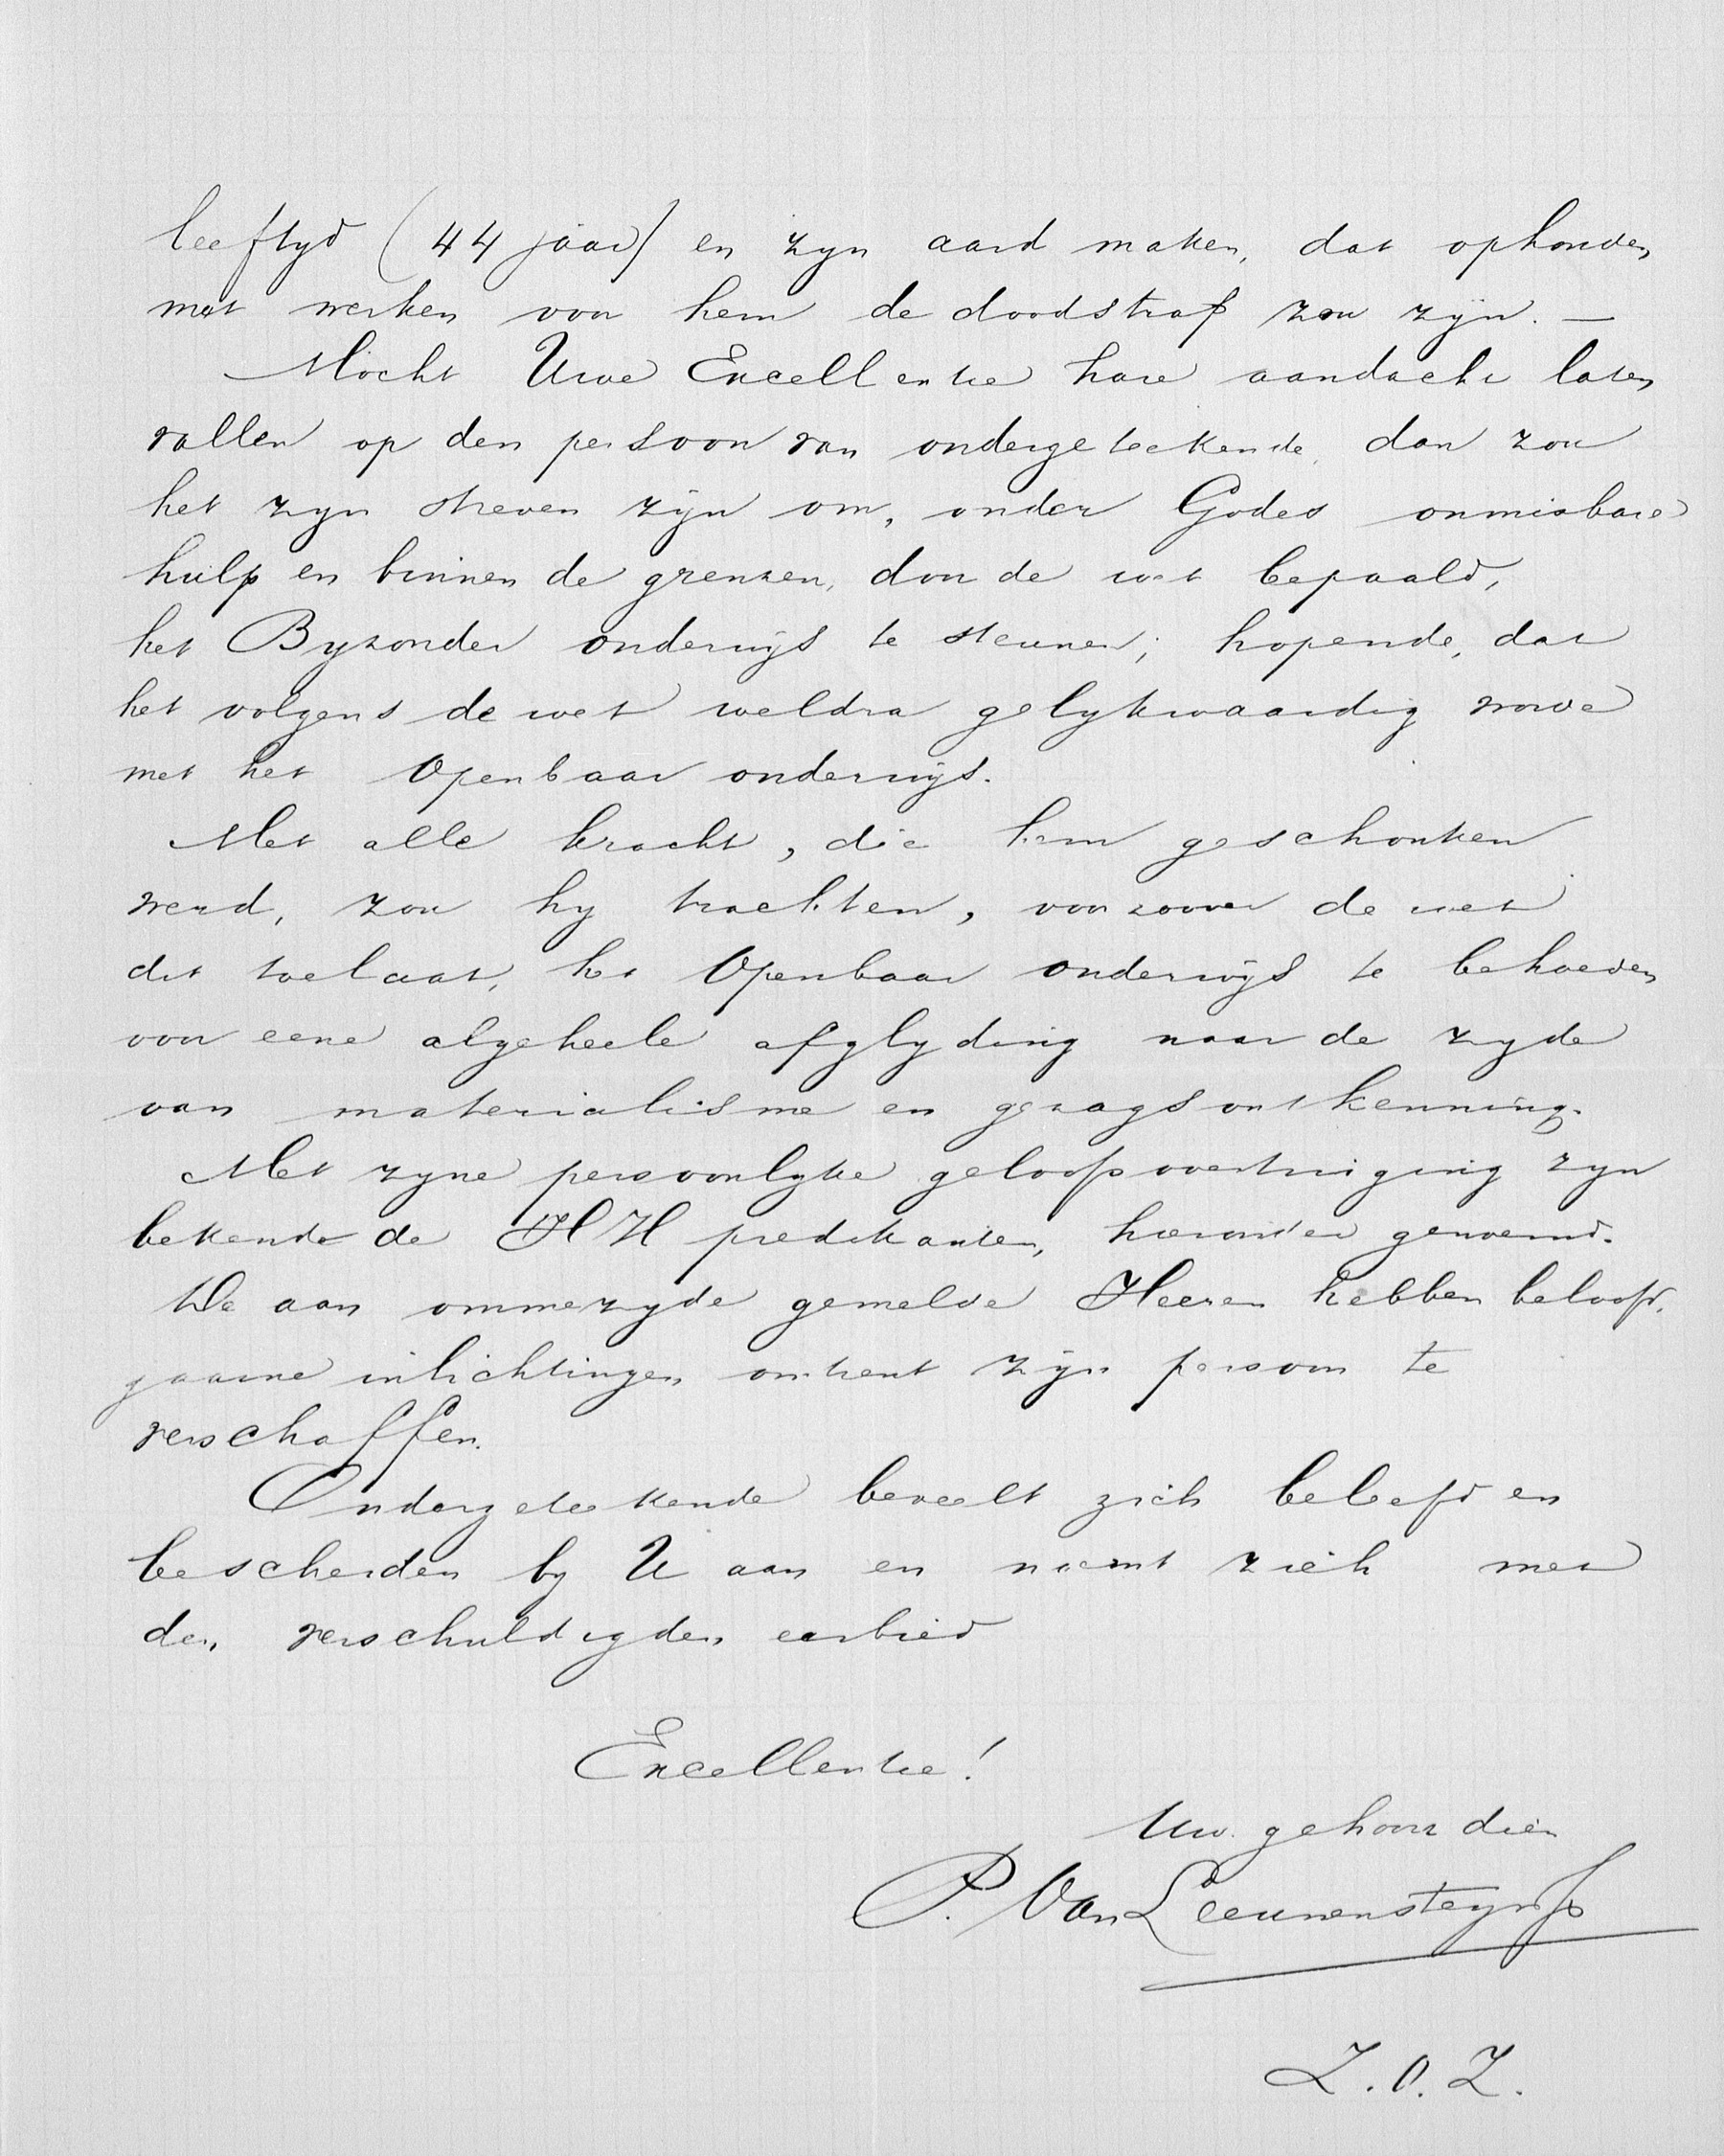 leeftyd (44 jaar) en zyn aard maken, dat ophouden
met werken voor hem de doodstraf zou zijn. —
Mocht Uwe Excellentie hare aandacht laten
vallen op den persoon van ondergeteekende, dan zou
het zyn streven zijn om, onder Godes onmisbare
hulp en binnen de grenzen, door de wet bepaald,
het Byzonder onderwijs te steunen; hopende, dat
het volgens de wet weldra gelykwaardig worde
met het Openbaar onderwijs.
Met alle kracht, die hem geschonken
werd, zou hy trachten, voorzoover de wet
dit toelaat, het Openbaar onderwijs te behoeden
voor eene algeheele afglyding naar de zyde
van materialisme en gezagsontkenning.
Met zyne persoonlyke geloofsovertuiging zyn
bekende de HH predikanten, hieronder genoemd.
De aan ommezyde gemelde Heeren hebben beloofd,
gaarne inlichtingen omtrent zijn persoon te
verschaffen.
Ondergeteekende beveelt zich beleefd en
bescheiden by U aan en noemt zich met
den verschuldigden eerbied
Excellentie!
Uw. gehoorz dien
P. Van Leeuwensteyn
Z.O.Z.